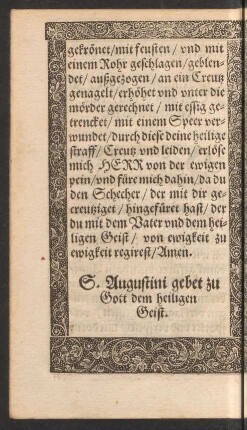 gekrönet/mit feusten/ vnd mit
einem Rohr geschlagen/geblen-
det/ außgezogen/ an ein Creutz
genagelt/erhöhet vnd vnter die
mörder gerechnet/ mit essig ge-
trencket/ mit einem Speer ver-
wundet/durch diese deine heilige
straff/ Creutz vnd leiden/ erlöse
mich HERR von der ewigen
pein/vnd füre mich dahin/da du
den Schecher/ der mit dir ge-
creutziget/ hingefüret hast/ der
du mit dem Vater vnd dem hei-
ligen Geist/ von ewigkeit zu
ewigkeit regirest/Amen.
S. Augustini gebet zu
Gott dem heiligen
Geist.